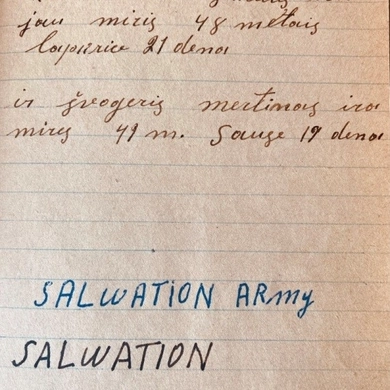 jau miris 48 metais
lapkrice 21 dena
ir švogeris mertinas ira
mires 49 m. Sause 19 dena
SALWATION ARmy
SALWATION